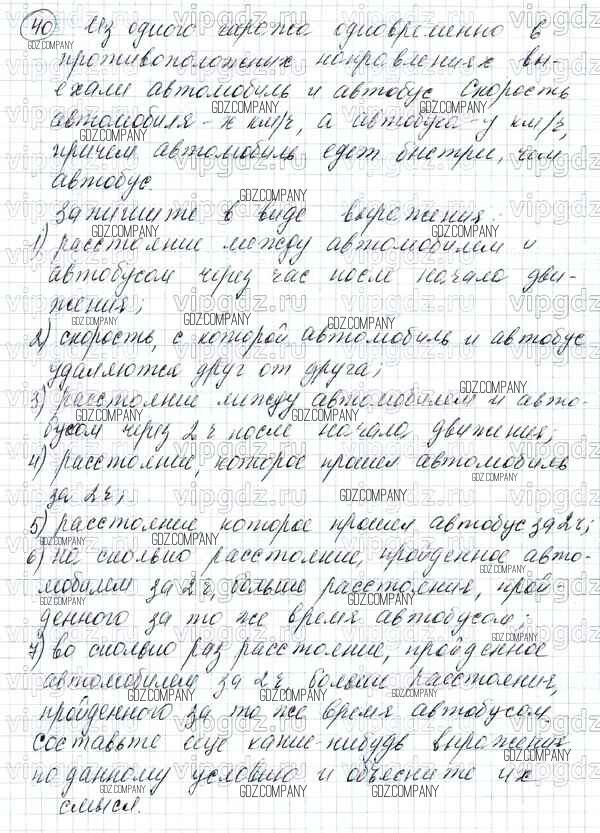 40 Из одного гаража одновременно в
противоположных направлениях вы-
ехали автомобиль и автобус. Скорость
автомобиля - х км/ч, а автобуса - у км/ч,
причем автомобиль едет быстрее, чем
автобус.
Запишите в виде выражения:
1) расстояние между автомобилем и
автобусом через час после начала дви-
жения;
2) скорость, с которой автомобиль и автобус
удаляются друг от друга;
3) расстояние между автомобилем и авто-
бусом через 2 ч после начала движения;
4) расстояние, которое прошел автомобиль
за 2 ч;
5) расстояние которое прошел автобус за 2 ч;
6) на сколько расстояние, пройденное авто-
мобилем за 2 ч, больше расстояния, прой-
денного за то же время автобусом;
7) во сколько раз расстояние, пройденное
автомобилем за 2 ч больше расстояния,
пройденного за то же время автобусом.
Составьте еще какие-нибудь выражения
по данному условию и объясните их
смысл.
GDZ.COMPANY
vipgdz.ru